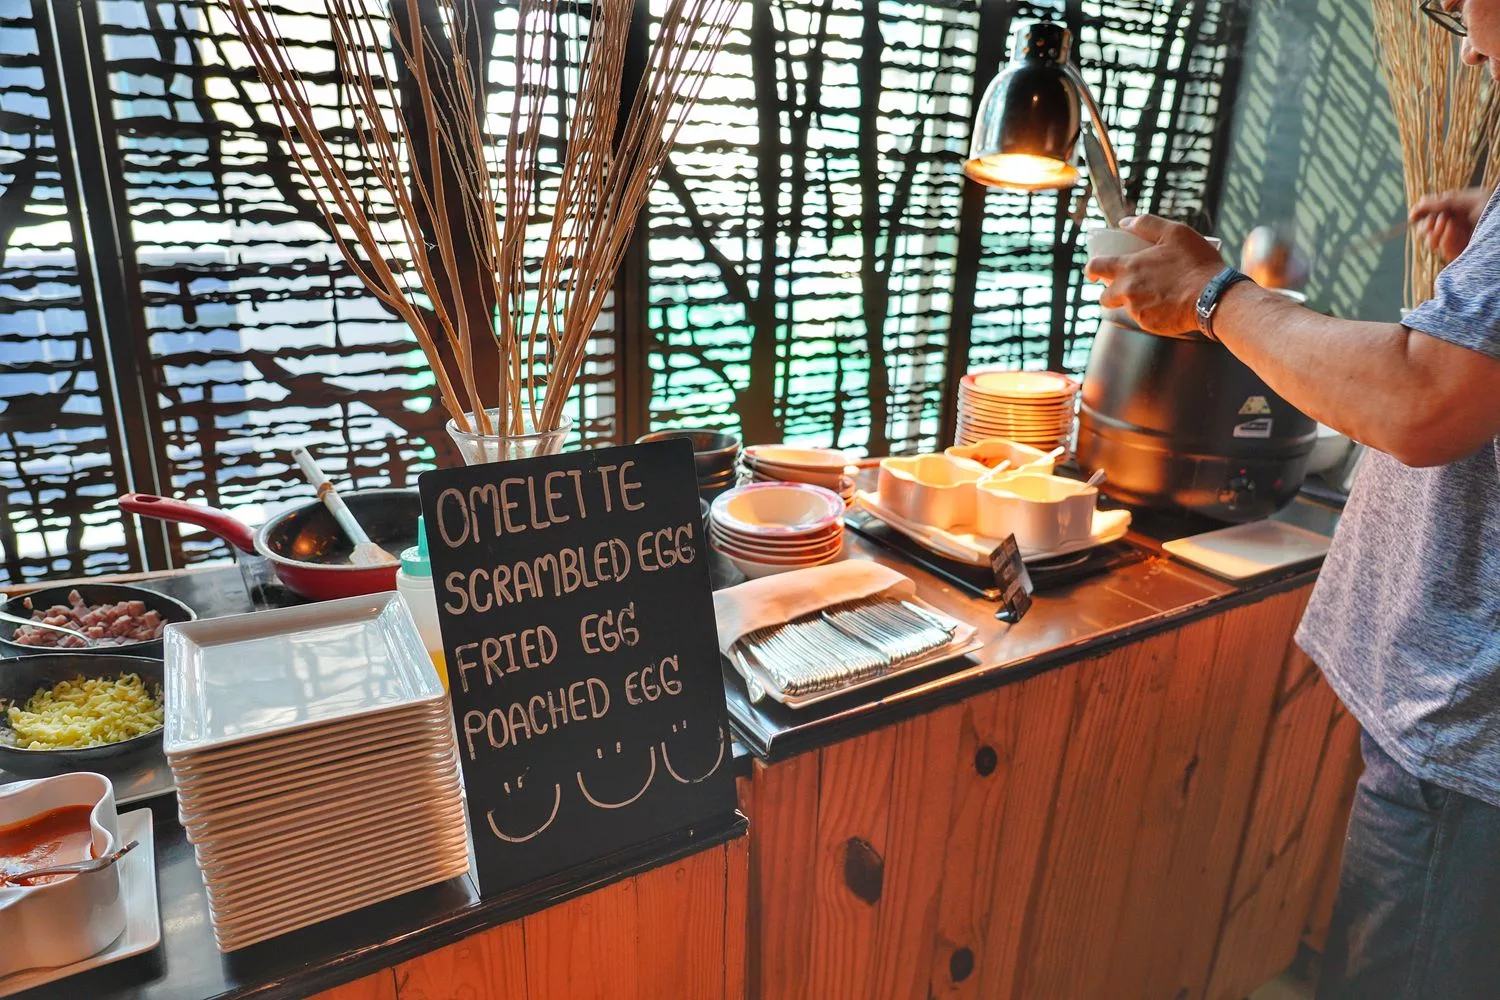 OMELETTE
SCRAMBLED EGG
FRIED EGG
POACHED EGG